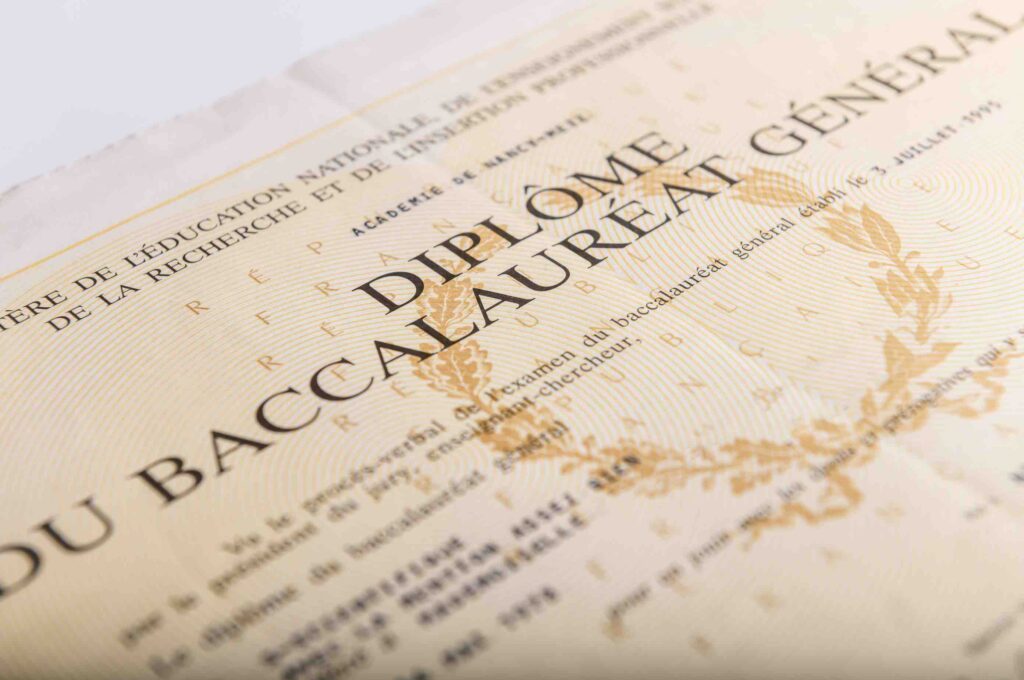 TÈRE DE L'ÉDUCATION NATIONALE DE L'ENSEIGNEMENT
DE LA RECHERCHE ET DE L'INSERTION PROFESSIONNELLE
ACADEMIE DE NANCY-METZ
DIPLÔME
DU BACCALAURÉAT GÉNÉRAL
Vu le procès-verbal de l'examen du baccalauréat général établi le 3 JUILLET 1995
par le président du jury, enseignant-chercheur,
Le diplôme du baccalauréat général
SCIENTIFIQUE
MENTION ASSEZ BIEN
MADEMOISELLE
pour en jouir avec les droits et prérogatives qui y